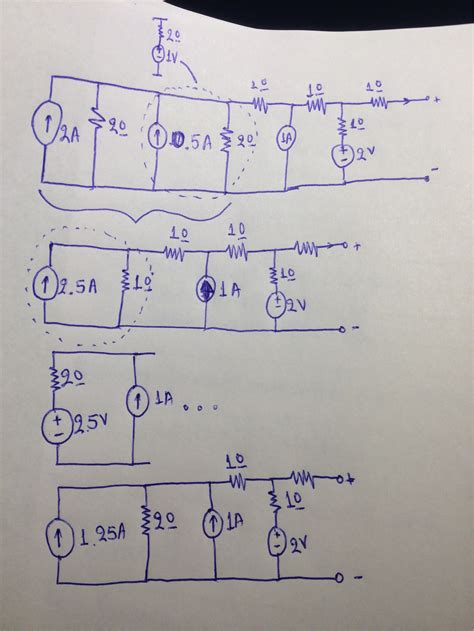 2Ω
1V
1Ω 1Ω 1Ω +
1Ω
2A 2Ω 0.5A 2Ω 1A
+ - 2V
-
1Ω 1Ω +
2.5A 1Ω 1A 1Ω
+ - 2V
-
2Ω 1A ...
+ - 2.5V
1Ω +
1Ω
1.25A 2Ω 1A
+ - 2V
-